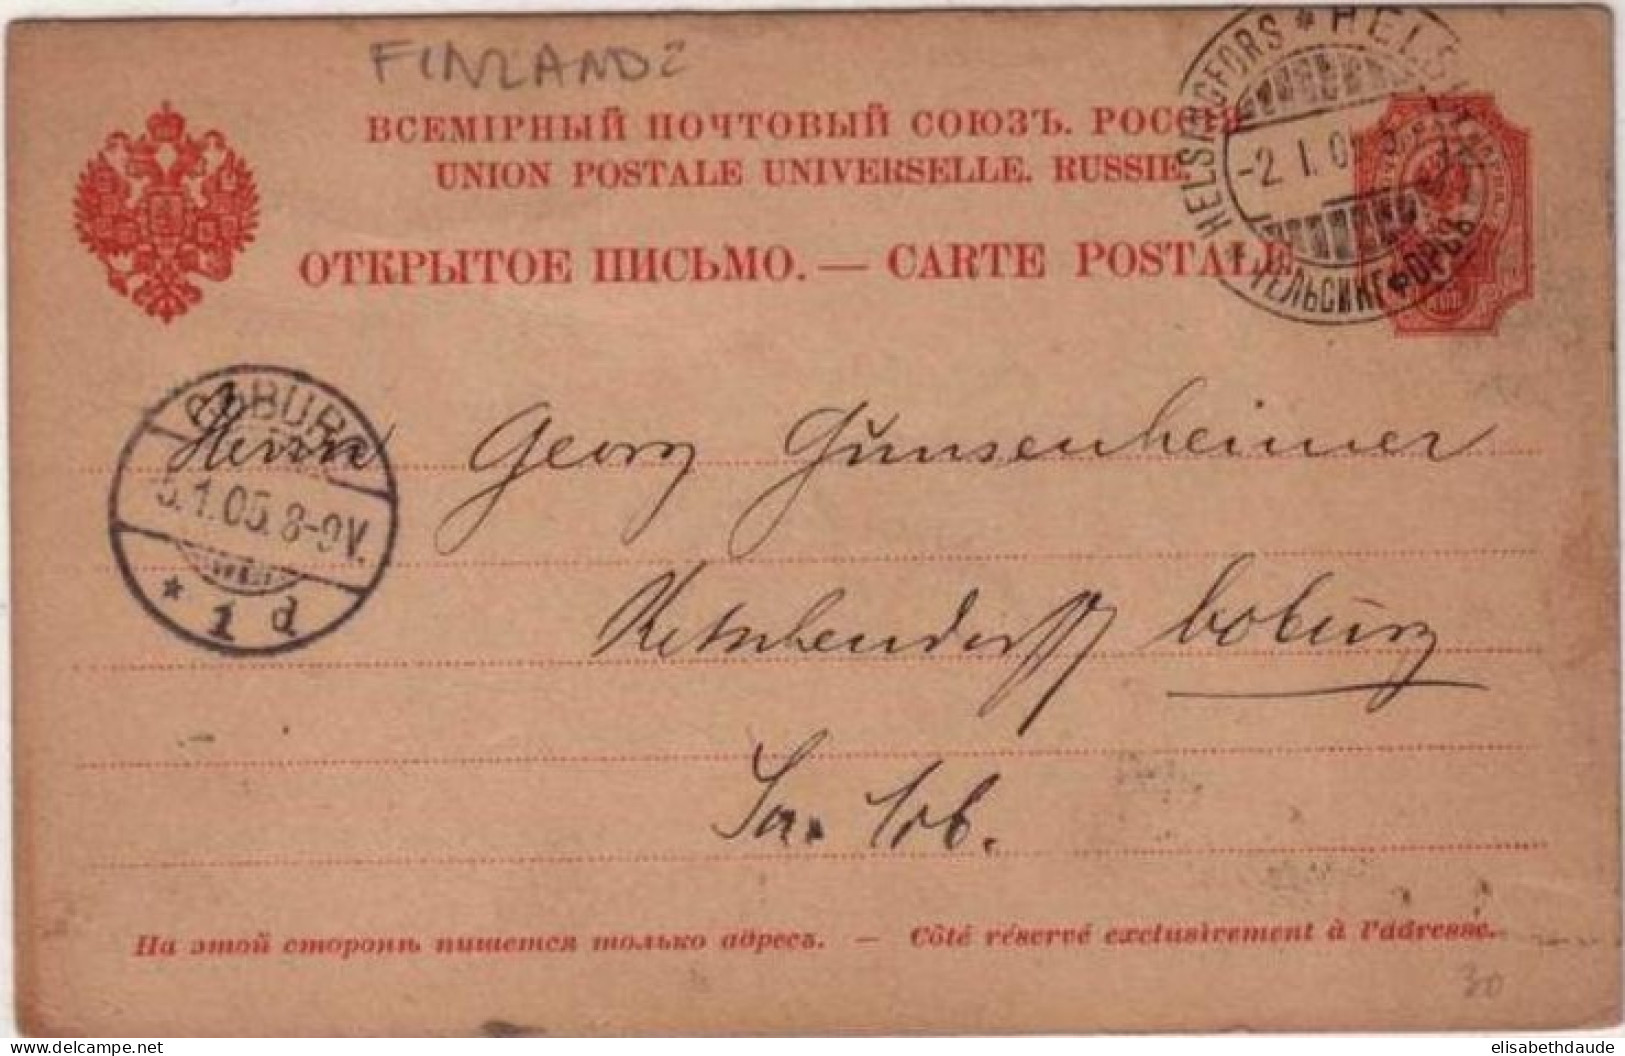 FINLANDE
ВСЕМІРНЫЙ ПОЧТОВЫЙ СОЮЗЪ. РОССІЯ
UNION POSTALE UNIVERSELLE. RUSSIE.
ОТКРЫТОЕ ПИСЬМО. — CARTE POSTALE.
HELSINGFORS * HELSINKI
-2. I. 05
ГЕЛЬСИНГФОРСЪ
COBURG
5.1.05. 8-9V.
* 1 d
Herrn Georg Gunsenheimer
Ketschendorff Coburg
Sa. Cob.
На этой сторонѣ пишется только адресъ. — Côté réservé exclusivement à l'adresse.
30
www.delcampe.net
elisabethdaude